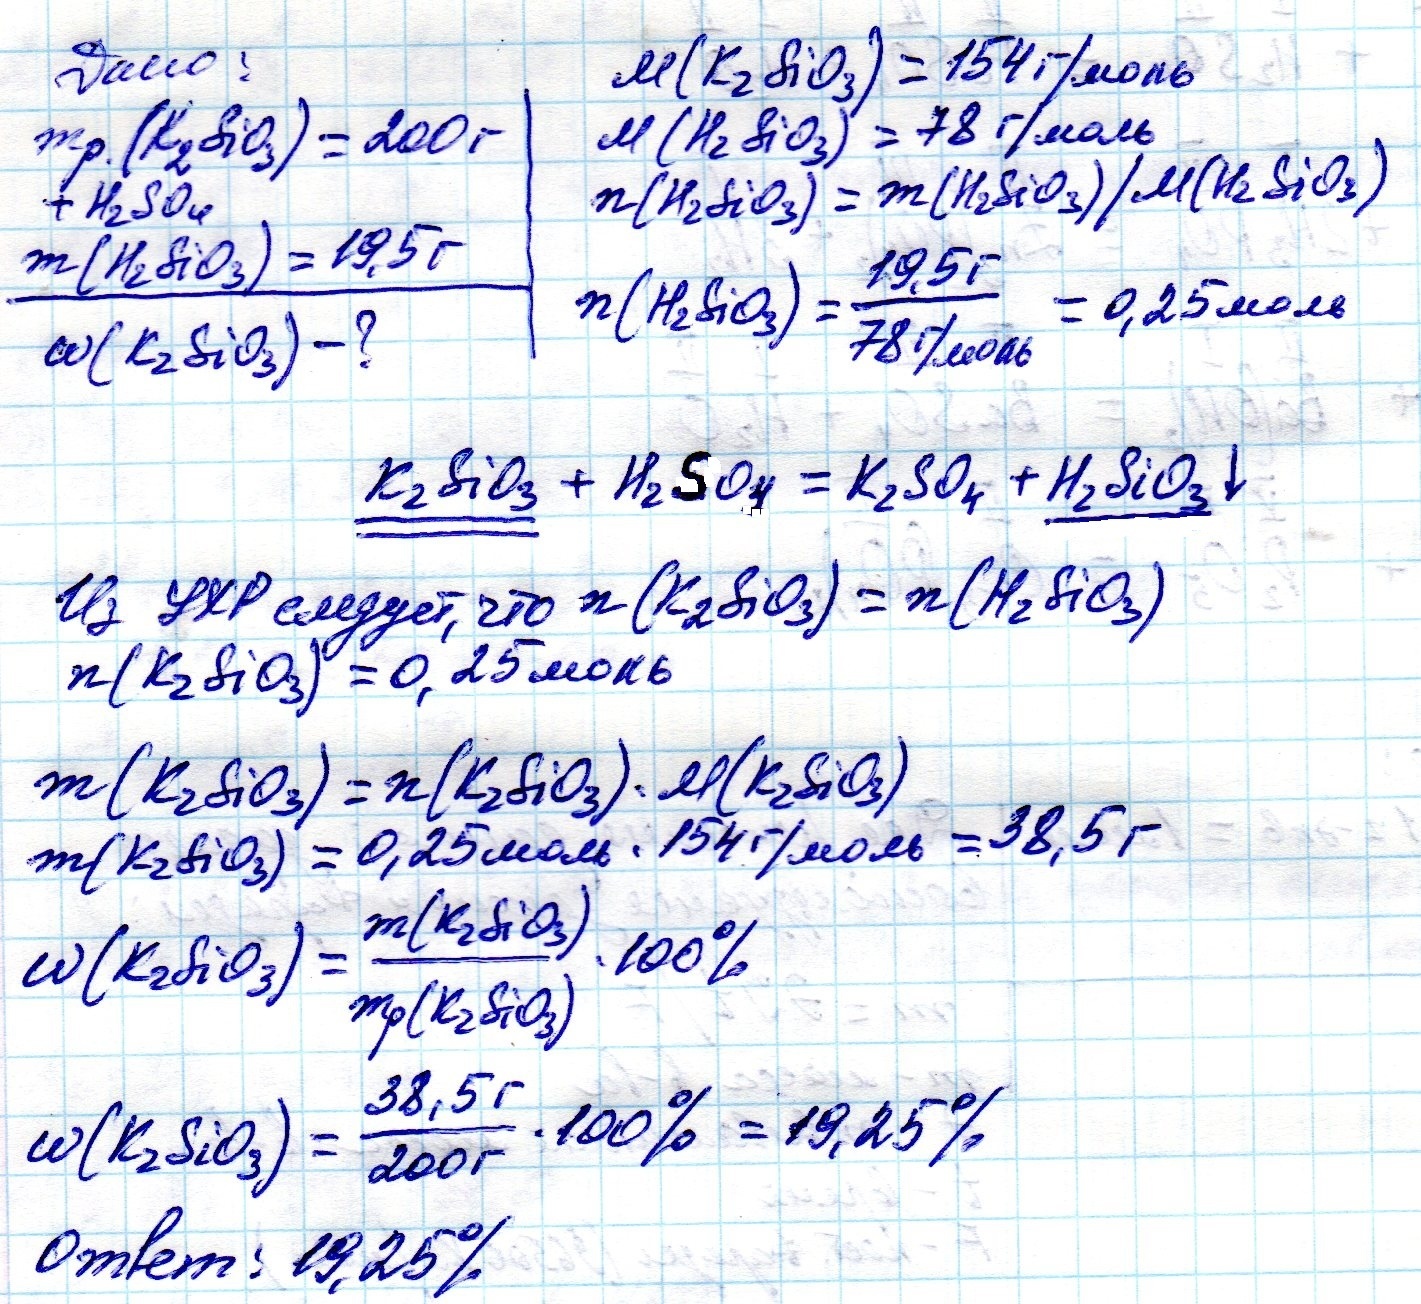 Дано:
mр.(K₂SiO₃) = 200г
+ H₂SO₄
m(H₂SiO₃) = 19,5г
ω(K₂SiO₃) – ?
M(K₂SiO₃) = 154г/моль
M(H₂SiO₃) = 78 г/моль
n(H₂SiO₃) = m(H₂SiO₃)/M(H₂SiO₃)
n(H₂SiO₃) = 19,5г / 78г/моль = 0,25моль
K₂SiO₃ + H₂SO₄ = K₂SO₄ + H₂SiO₃↓
Из УХР следует, что n(K₂SiO₃) = n(H₂SiO₃)
n(K₂SiO₃) = 0,25моль
m(K₂SiO₃) = n(K₂SiO₃) · M(K₂SiO₃)
m(K₂SiO₃) = 0,25моль · 154г/моль = 38,5г
ω(K₂SiO₃) = m(K₂SiO₃) / mр(K₂SiO₃) · 100%
ω(K₂SiO₃) = 38,5г / 200г · 100% = 19,25%
Ответ: 19,25%